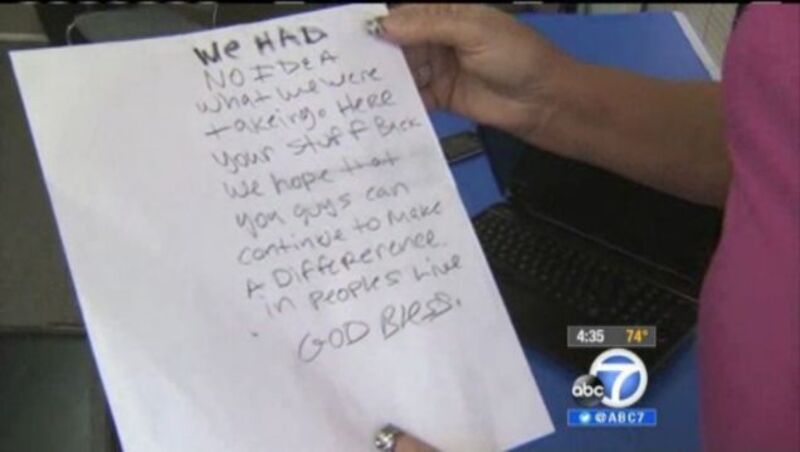 We HAD
NO IDeA
what we were
takeing. Here
your stuff Back
we hope that
you guys can
continue to make
A Difference
in peoples live
GOD Bless.
4:35 74°
abc 7
@ABC7